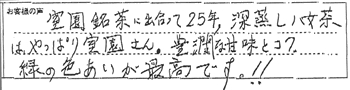 お客様の声
室園銘茶に出会って25年、深蒸し八女茶
は、やっぱり室園さん。豊潤な甘味とコク、
緑の色あいが最高です。!!